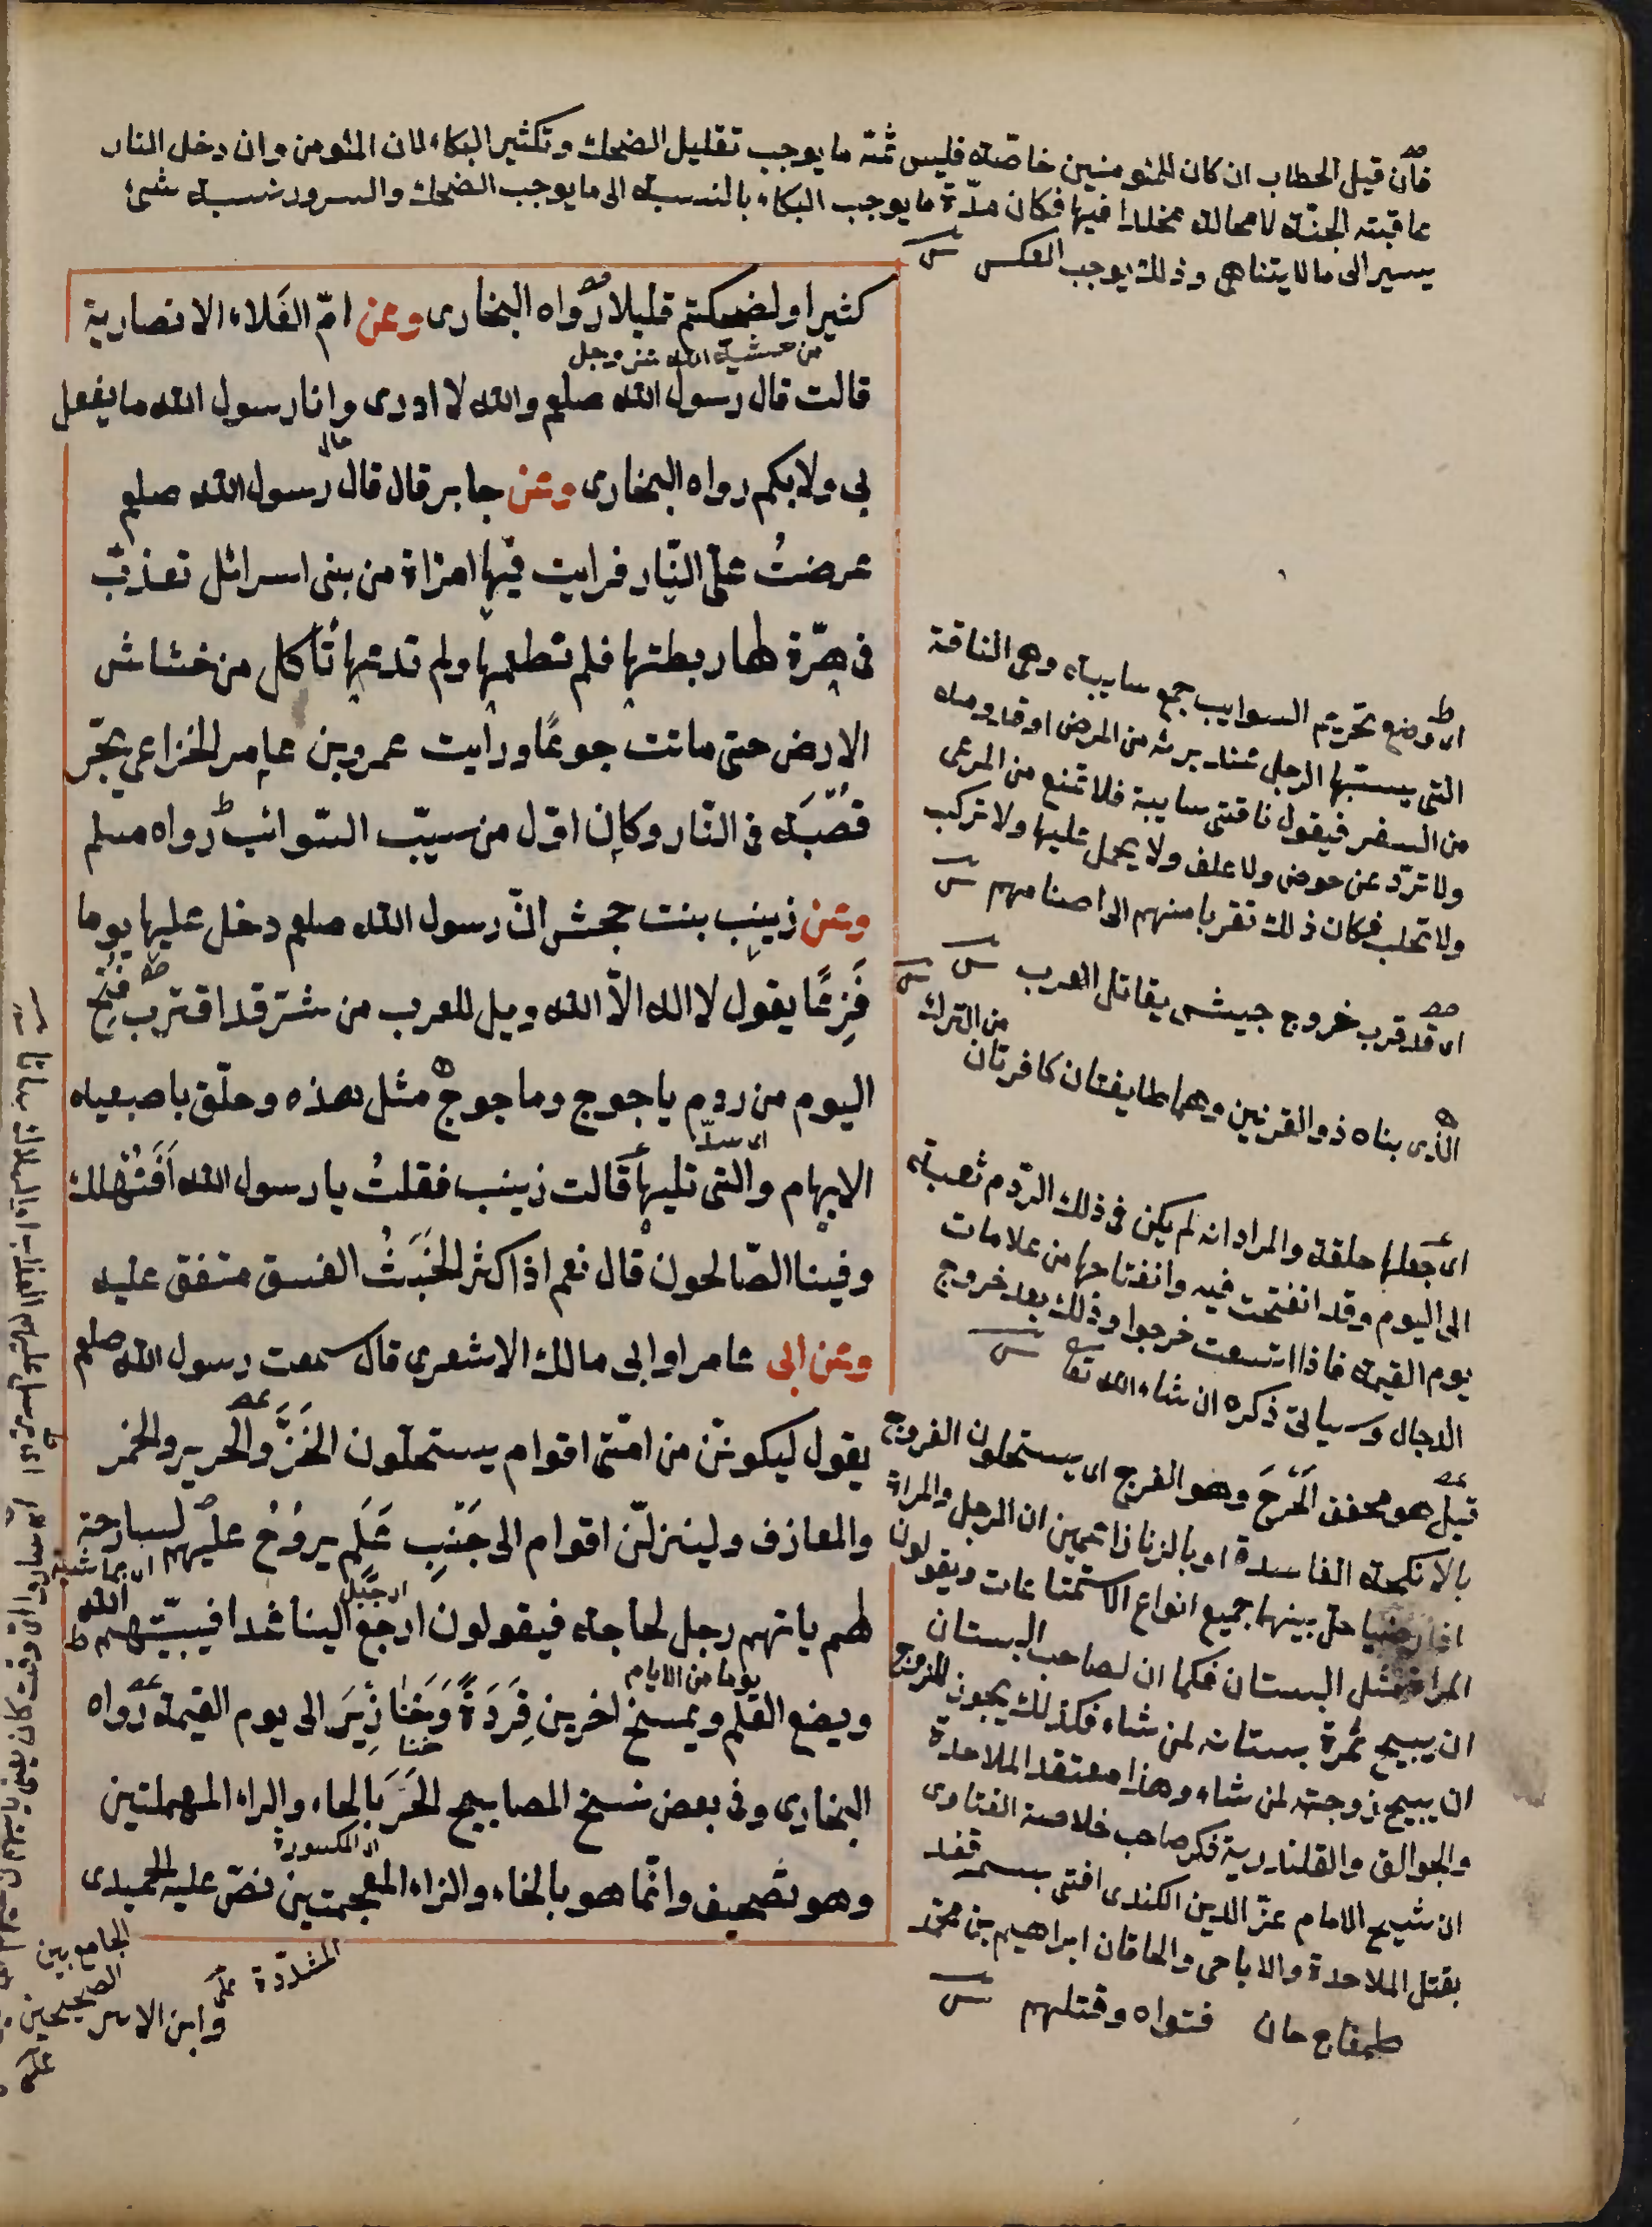 فان قيل الخطاب ان كان للمؤمنين خاصة فليس ثمة ما يوجب تقليل الضحك وتكثير البكاء لان المؤمن وان دخل النار
عاقبته الجنة لا محالة مخلدا فيها فكان مدّة ما يوجب البكاء بالنسبة الى ما يوجب الضحك والسرور نسبة شئ
يسير الى ما لا يتناهى وذلك يوجب العكس
كثيرا ولضحكتم قليلا رواه البخارى وعن امّ العَلاء الانصارية
من خشية الله عز وجل
قالت قال رسول الله صلعم والله لا ادرى وانا رسول الله ما يفعل
بى ولا بكم رواه البخارى وعن جابر قال قال رسول الله صلعم
عرضتْ علىّ النّار فرايت فيها امراة من بنى اسرائل تعذّب
فى هرّة لها ربطتها فلم تطعمها ولم تدعها تأكل من خشاش
الارض حتى ماتت جوعًا ورايت عمرو بن عامر الخزاعى يجرّ
قُصْبَه فى النّار وكان اوّل من سيّب السّوائب رواه مسلم
وعن زينب بنت جحش انّ رسول الله صلعم دخل عليها يوما
فَزِعًا يقول لا اله الّا الله ويل للعرب من شرّ قد اقترب فتح
اليوم من ردم ياجوج وماجوج مثل هذه وحلّق باصبعيه
اى سدّ
الابهام والتى تليها قالت زينب فقلتُ يا رسول الله اَفَنُهْلك
وفينا الصّالحون قال نعم اذا كثر الخَبَثُ الفسق متفق عليه
وعن ابى عامر او ابى مالك الاشعرى قال سمعت رسول الله صلعم
يقول ليكوننّ من امّتى اقوام يستحلّون الخَزَّ والحرير والخمر
والمعازف ولينزلنّ اقوام الى جَنْبِ عَلَم يروُحُ عليهم لسارحة
اى ماشية
لهم ياتيهم رجل لحاجة فيقولون ارجع الينا غدا فيبيّتهم الله
يوما من الايام
ويضع العَلَم ويمسخ اخرين قِرَدَةً وَخَنازِيرَ الى يوم القيمة رواه
البخارى وفى بعض نسخ المصابيح الحَرَ بالحاء والراء المهملتين
اى المكسورة
وهو تصحيف وانّما هو بالخاء والزاء المعجمتين نصّ عليه الحميدى
المشدّدة
وابن الاثير
الجامع بين
الصحيحين
اى وضع تحريم السوايب جمع سايبة وهى الناقة
التى يسيبها الرجل عند برئه من المرض او قدومه
من السفر فيقول ناقتى سايبة فلا تمنع من المرعى
ولا تردّ عن حوض ولا علف ولا يحمل عليها ولا تركب
ولا تحلب فكان ذلك تقربا منهم الى اصنامهم
اى قد قرب خروج جيش يقاتل العرب
من الترك
الذى بناه ذو القرنين وهما طايفتان كافرتان
اى جعلها حلقة والمراد انه لم يكن فى ذلك الردم ثقبة
الى اليوم وقد انفتحت فيه وانفتاحها من علامات
يوم القيمة فاذا اتسعت خرجوا وذلك بعد خروج
الدجال وسياتى ذكره ان شاء الله تعا
قيل هو مخفف الحَرَج وهو الفرج اى يستحلون الفروج
بالانكحة الفاسدة او بالزنا زاعمين ان الرجل والمراة
اذا رضيا حل بينهما جميع انواع الاستمتاعات ويقولون
المراة مثل البستان فكما ان لصاحب البستان
ان يبيح ثمرة بستانه لمن شاء فكذلك يجوز للزوج
ان يبيح زوجته لمن شاء وهذا معتقد الملاحدة
والجوالق والقلندرية فكر صاحب خلاصة الفتاوى
ان شيخ الامام عزّ الدين الكندى افتى بسمرقند
بقتل الملاحدة والاباحى والخاقان ابراهيم بن محمد
طمغاج خان فتواه وقتلهم